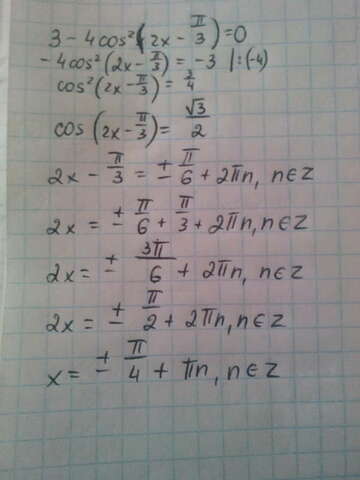 3 - 4cos²(2x - π/3) = 0
- 4cos²(2x - π/3) = -3 |:(-4)
cos²(2x - π/3) = 3/4
cos(2x - π/3) = √3/2
2x - π/3 = ± π/6 + 2πn, n∈Z
2x = ± π/6 + π/3 + 2πn, n∈Z
2x = ± 3π/6 + 2πn, n∈Z
2x = ± π/2 + 2πn, n∈Z
x = ± π/4 + πn, n∈Z